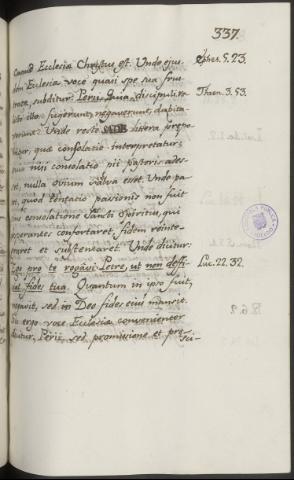 337.
Caput Ecclesiæ Christus est. Unde ejus-
dem Ecclesiæ voce quasi spe sua frus-
trata, subditur: Perii. Quia discipuli re-
licto illo fugerunt, negaverunt, dubita-
verunt. Unde recte litera præpo-
nitur, quæ consolatio interpretatur:
quia nisi consolatio pii pastoris ades-
set, nulla ovium salva esset. Unde pa-
tet, quod tentatio passionis non fuit
sine consolatione Sancti Spiritus, qui
desperantes confortaret, fidem reinte-
graret et sustentaret. Unde dicitur:
Ego pro te rogavi Petre, ut non defi-
ciat fides tua. Quantum in ipso fuit,
negavit, sed in Deo fides eius mansit.
In ergo voce Ecclesiæ convenienter
dicitur, Perii, sed promissione et præ-
sci-
Ephes. 5. 23.
Thren. 3. 53.
Luc. 22. 32.